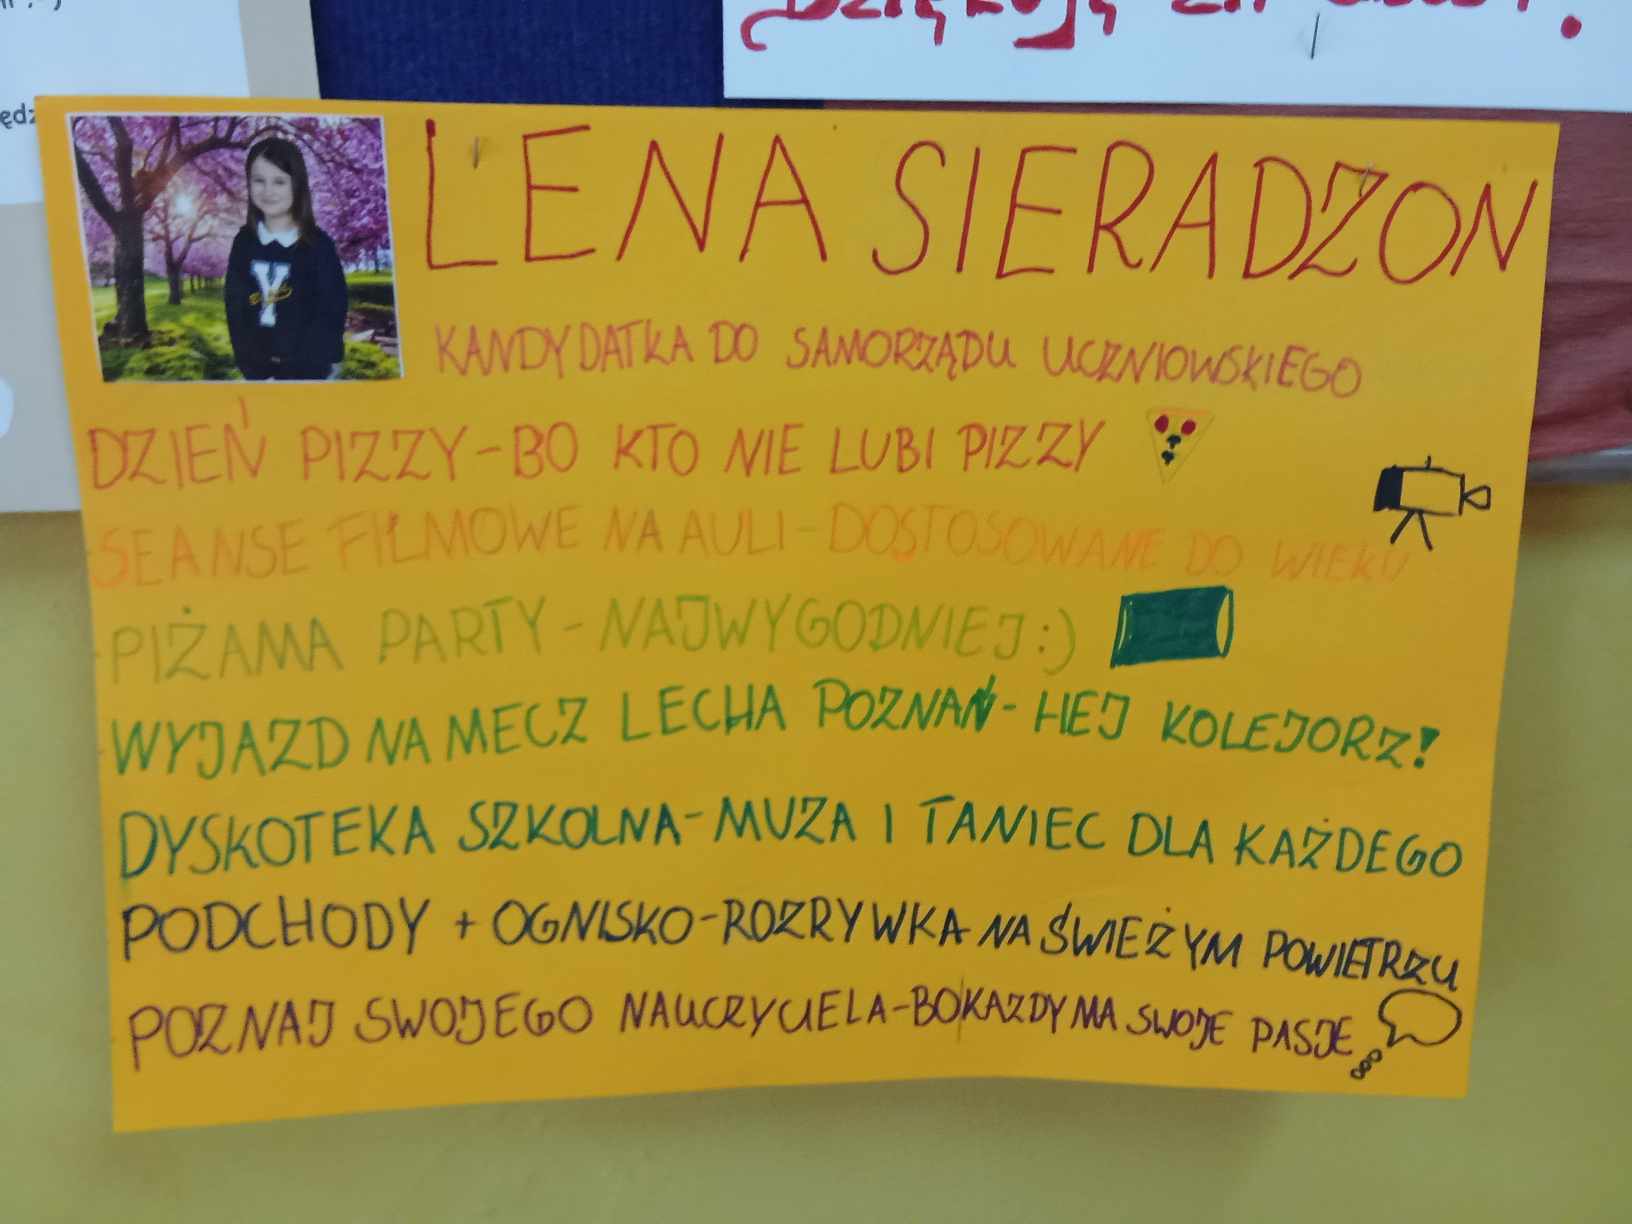 LENA SIERADZON
KANDYDATKA DO SAMORZĄDU UCZNIOWSKIEGO
DZIEŃ PIZZY-BO KTO NIE LUBI PIZZY
SEANSE FILMOWE NA AULI-DOSTOSOWANE DO WIEKU
PIŻAMA PARTY-NAJWYGODNIEJ:)
WYJAZD NA MECZ LECHA POZNAŃ-HEJ KOLEJORZ!
DYSKOTEKA SZKOLNA-MUZA I TANIEC DLA KAŻDEGO
PODCHODY + OGNISKO-ROZRYWKA NA ŚWIEŻYM POWIETRZU
POZNAJ SWOJEGO NAUCZYCIELA-BO KAZDY MA SWOJE PASJE